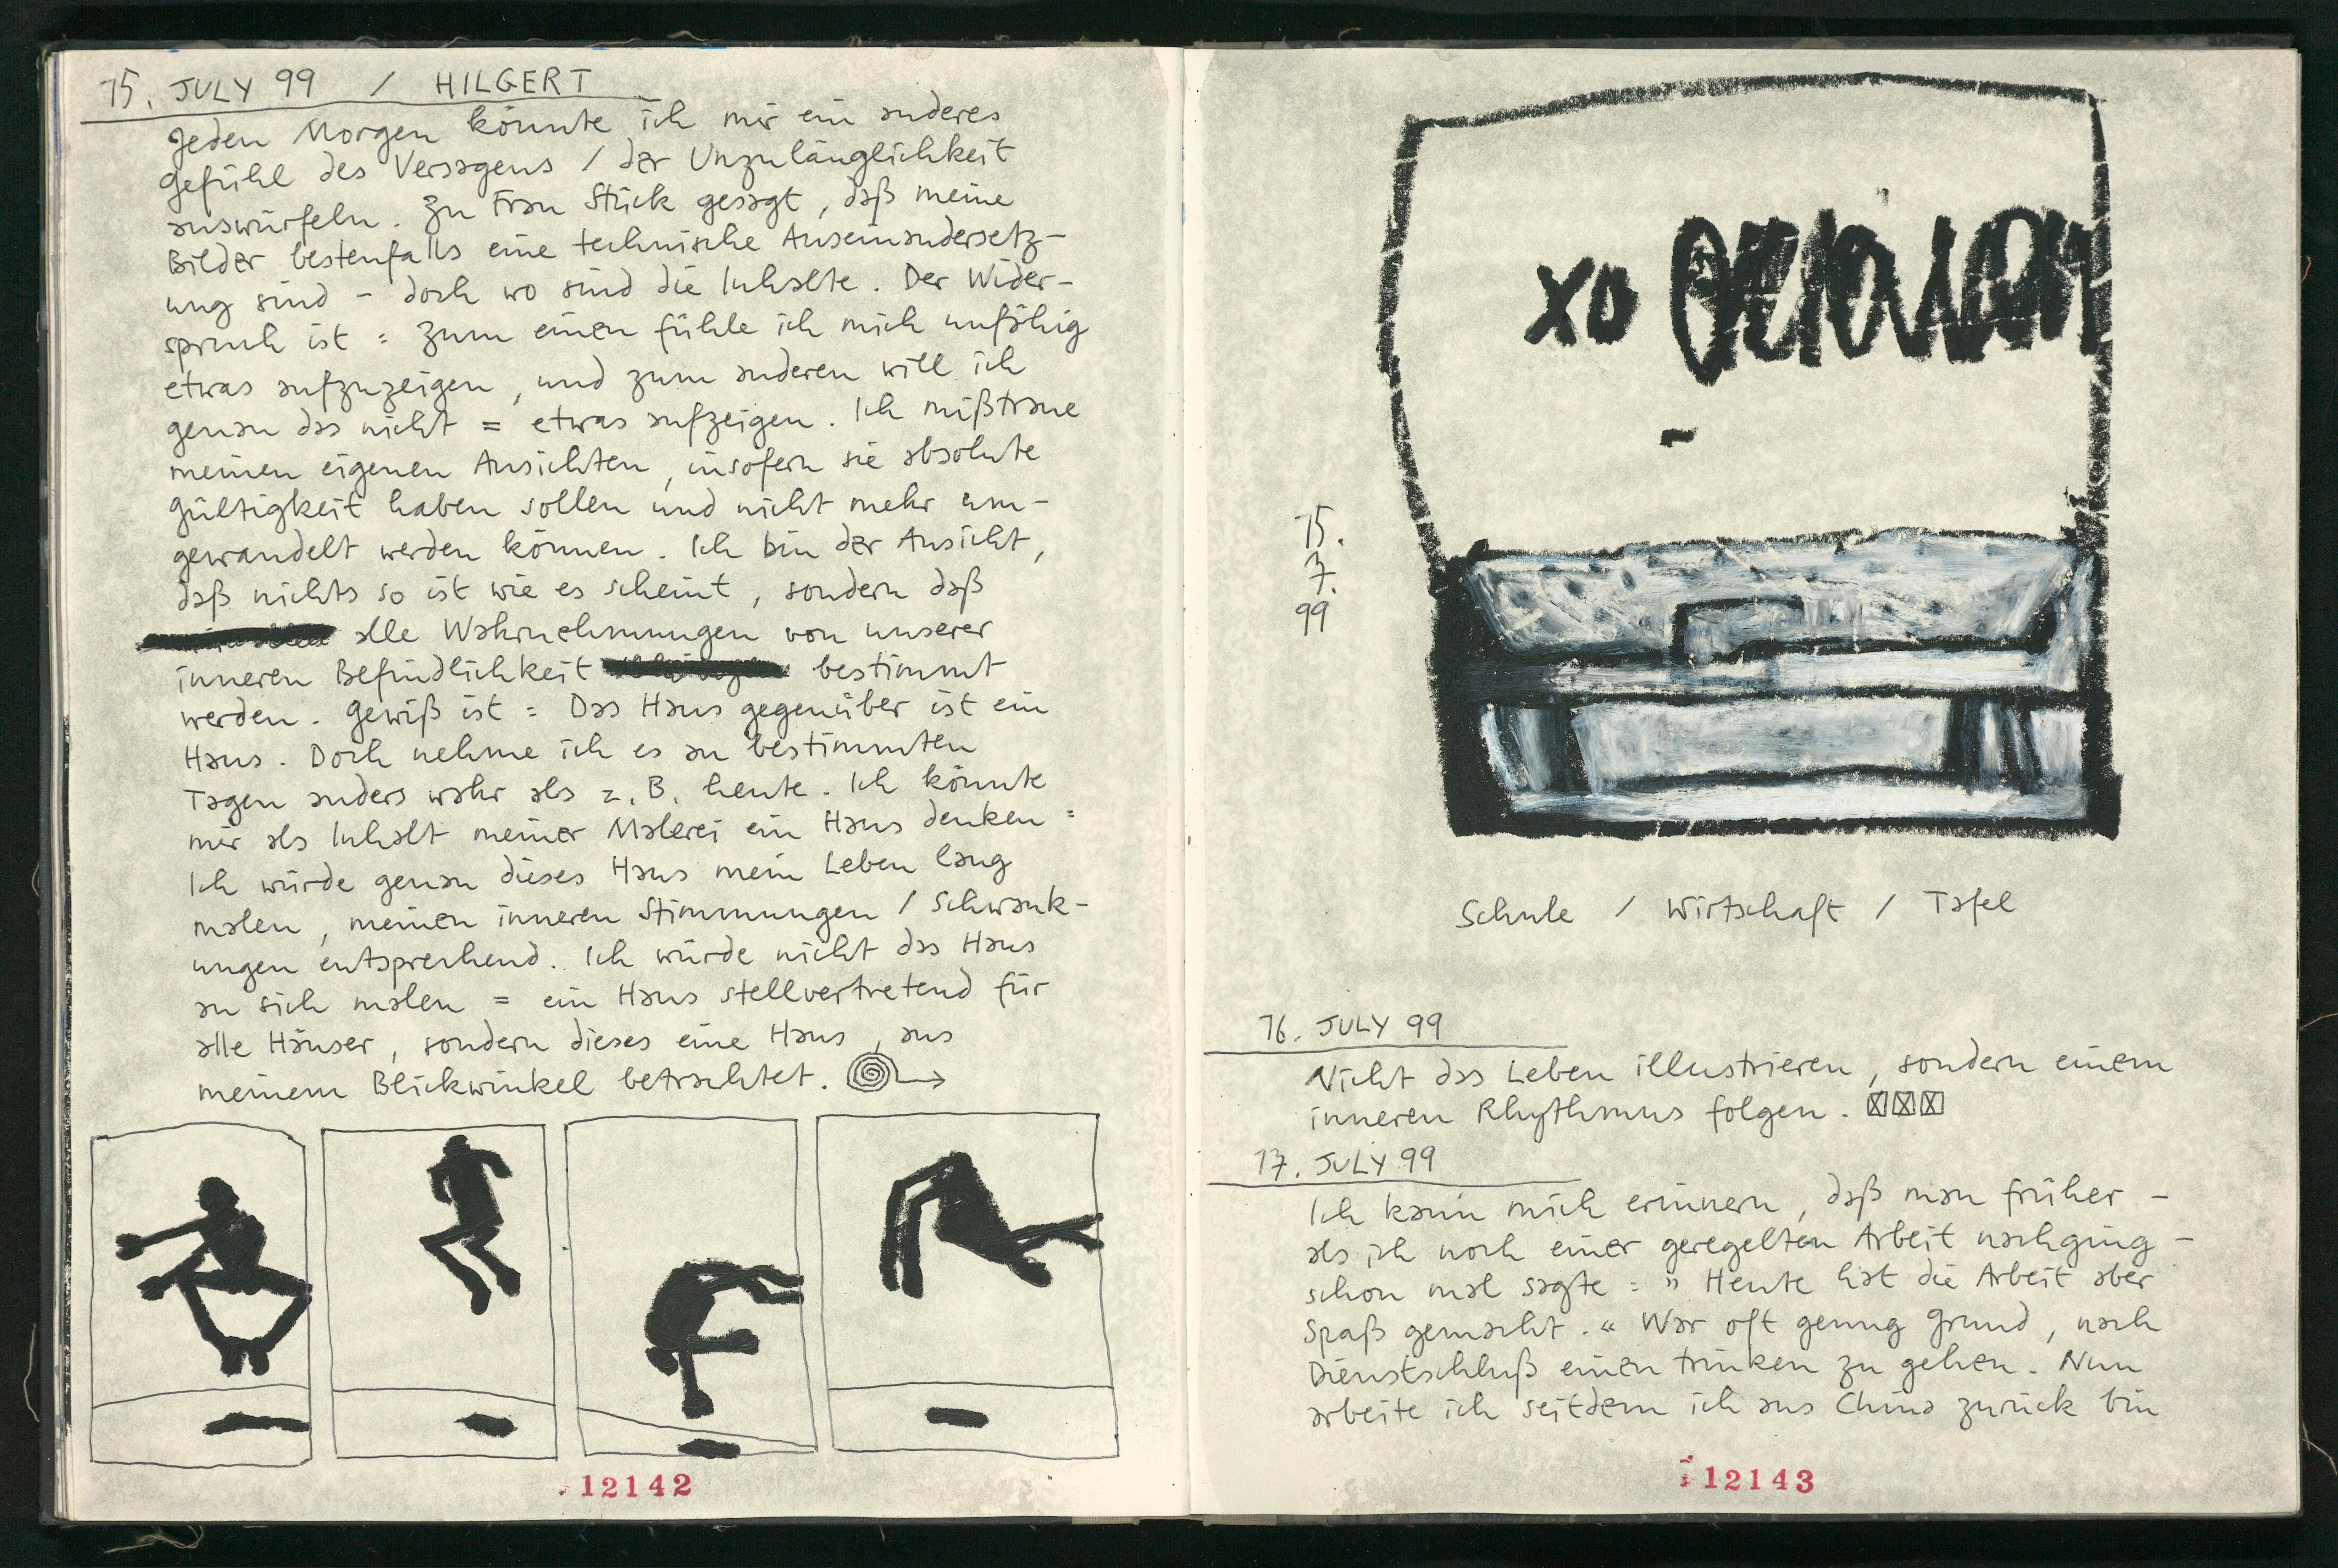 15. JULY 99 / HILGERT
Jeden Morgen könnte ich mir ein anderes
Gefühl des Versagens / der Unzulänglichkeit
auswürfeln. Zu Frau Stück gesagt, daß meine
Bilder bestenfalls eine technische Auseinandersetz-
ung sind - doch wo sind die Inhalte. Der Wider-
spruch ist = Zum einen fühle ich mich unfähig
etwas aufzuzeigen, und zum anderen will ich
genau das nicht = etwas aufzeigen. Ich mißtraue
meinen eigenen Ansichten, insofern sie absolute
Gültigkeit haben sollen und nicht mehr um-
gewandelt werden können. Ich bin der Ansicht,
daß nichts so ist wie es scheint, sondern daß
alle Wahrnehmungen von unserer
inneren Befindlichkeit bestimmt
werden. Gewiß ist = Das Haus gegenüber ist ein
Haus. Doch nehme ich es an bestimmten
Tagen anders wahr als z. B. heute. Ich könnte
mir als Inhalt meiner Malerei ein Haus denken =
Ich würde genau dieses Haus mein Leben lang
malen, meinen inneren Stimmungen / Schwank-
ungen entsprechend. Ich würde nicht das Haus
an sich malen = ein Haus stellvertretend für
alle Häuser, sondern dieses eine Haus, aus
meinem Blickwinkel betrachtet.
12142
xo
15.
7.
99
Schule / Wirtschaft / Tafel
16. JULY 99
Nicht das Leben illustrieren, sondern einem
inneren Rhythmus folgen.
17. JULY 99
Ich kann mich erinnern, daß man früher -
als ich noch einer geregelten Arbeit nachging -
schon mal sagte = "Heute hat die Arbeit aber
Spaß gemacht." War oft genug Grund, nach
Dienstschluß einen trinken zu gehen. Nun
arbeite ich seitdem ich aus China zurück bin
12143